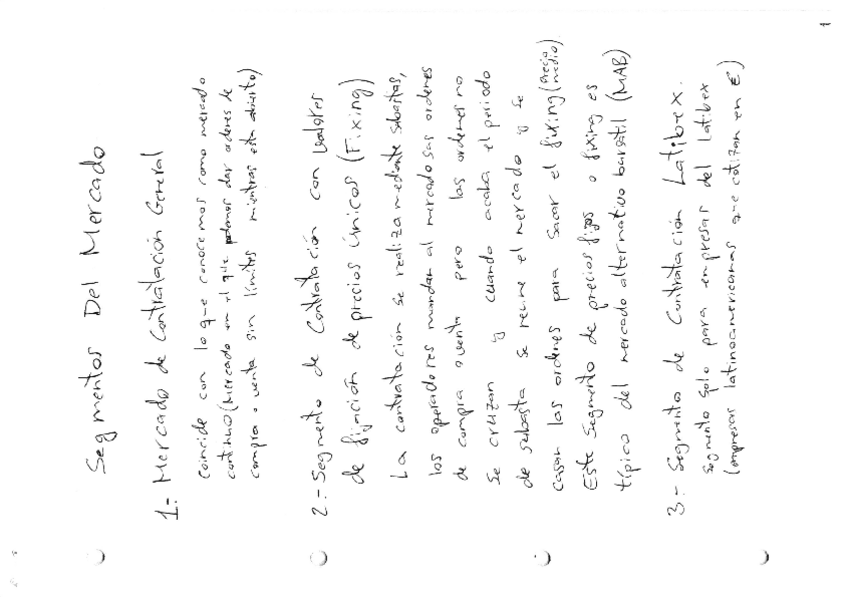 1
Segmentos Del Mercado
1.- Mercado de Contratación General
Coincide con lo que conocemos como mercado
continuo (Mercado en el que podemos dar ordenes de
compra o venta sin límites mientras esta abierto)
2.- Segmento de Contratación con valores
de fijación de precios únicos (Fixing)
La contratación se realiza mediante subastas,
los operadores mandan al mercado sus ordenes
de compra o venta pero las ordenes no
se cruzan y cuando acaba el periodo
de subasta se reune el mercado y se
casan las ordenes para sacar el fixing (Precio medio)
Este segmento de precios fijos o fixing es
típico del mercado alternativo bursátil (MAB)
3.- Segmento de Contratación Latibex.
Segmento solo para empresas del Latibex
(empresas latinoamericanas que cotizan en €)